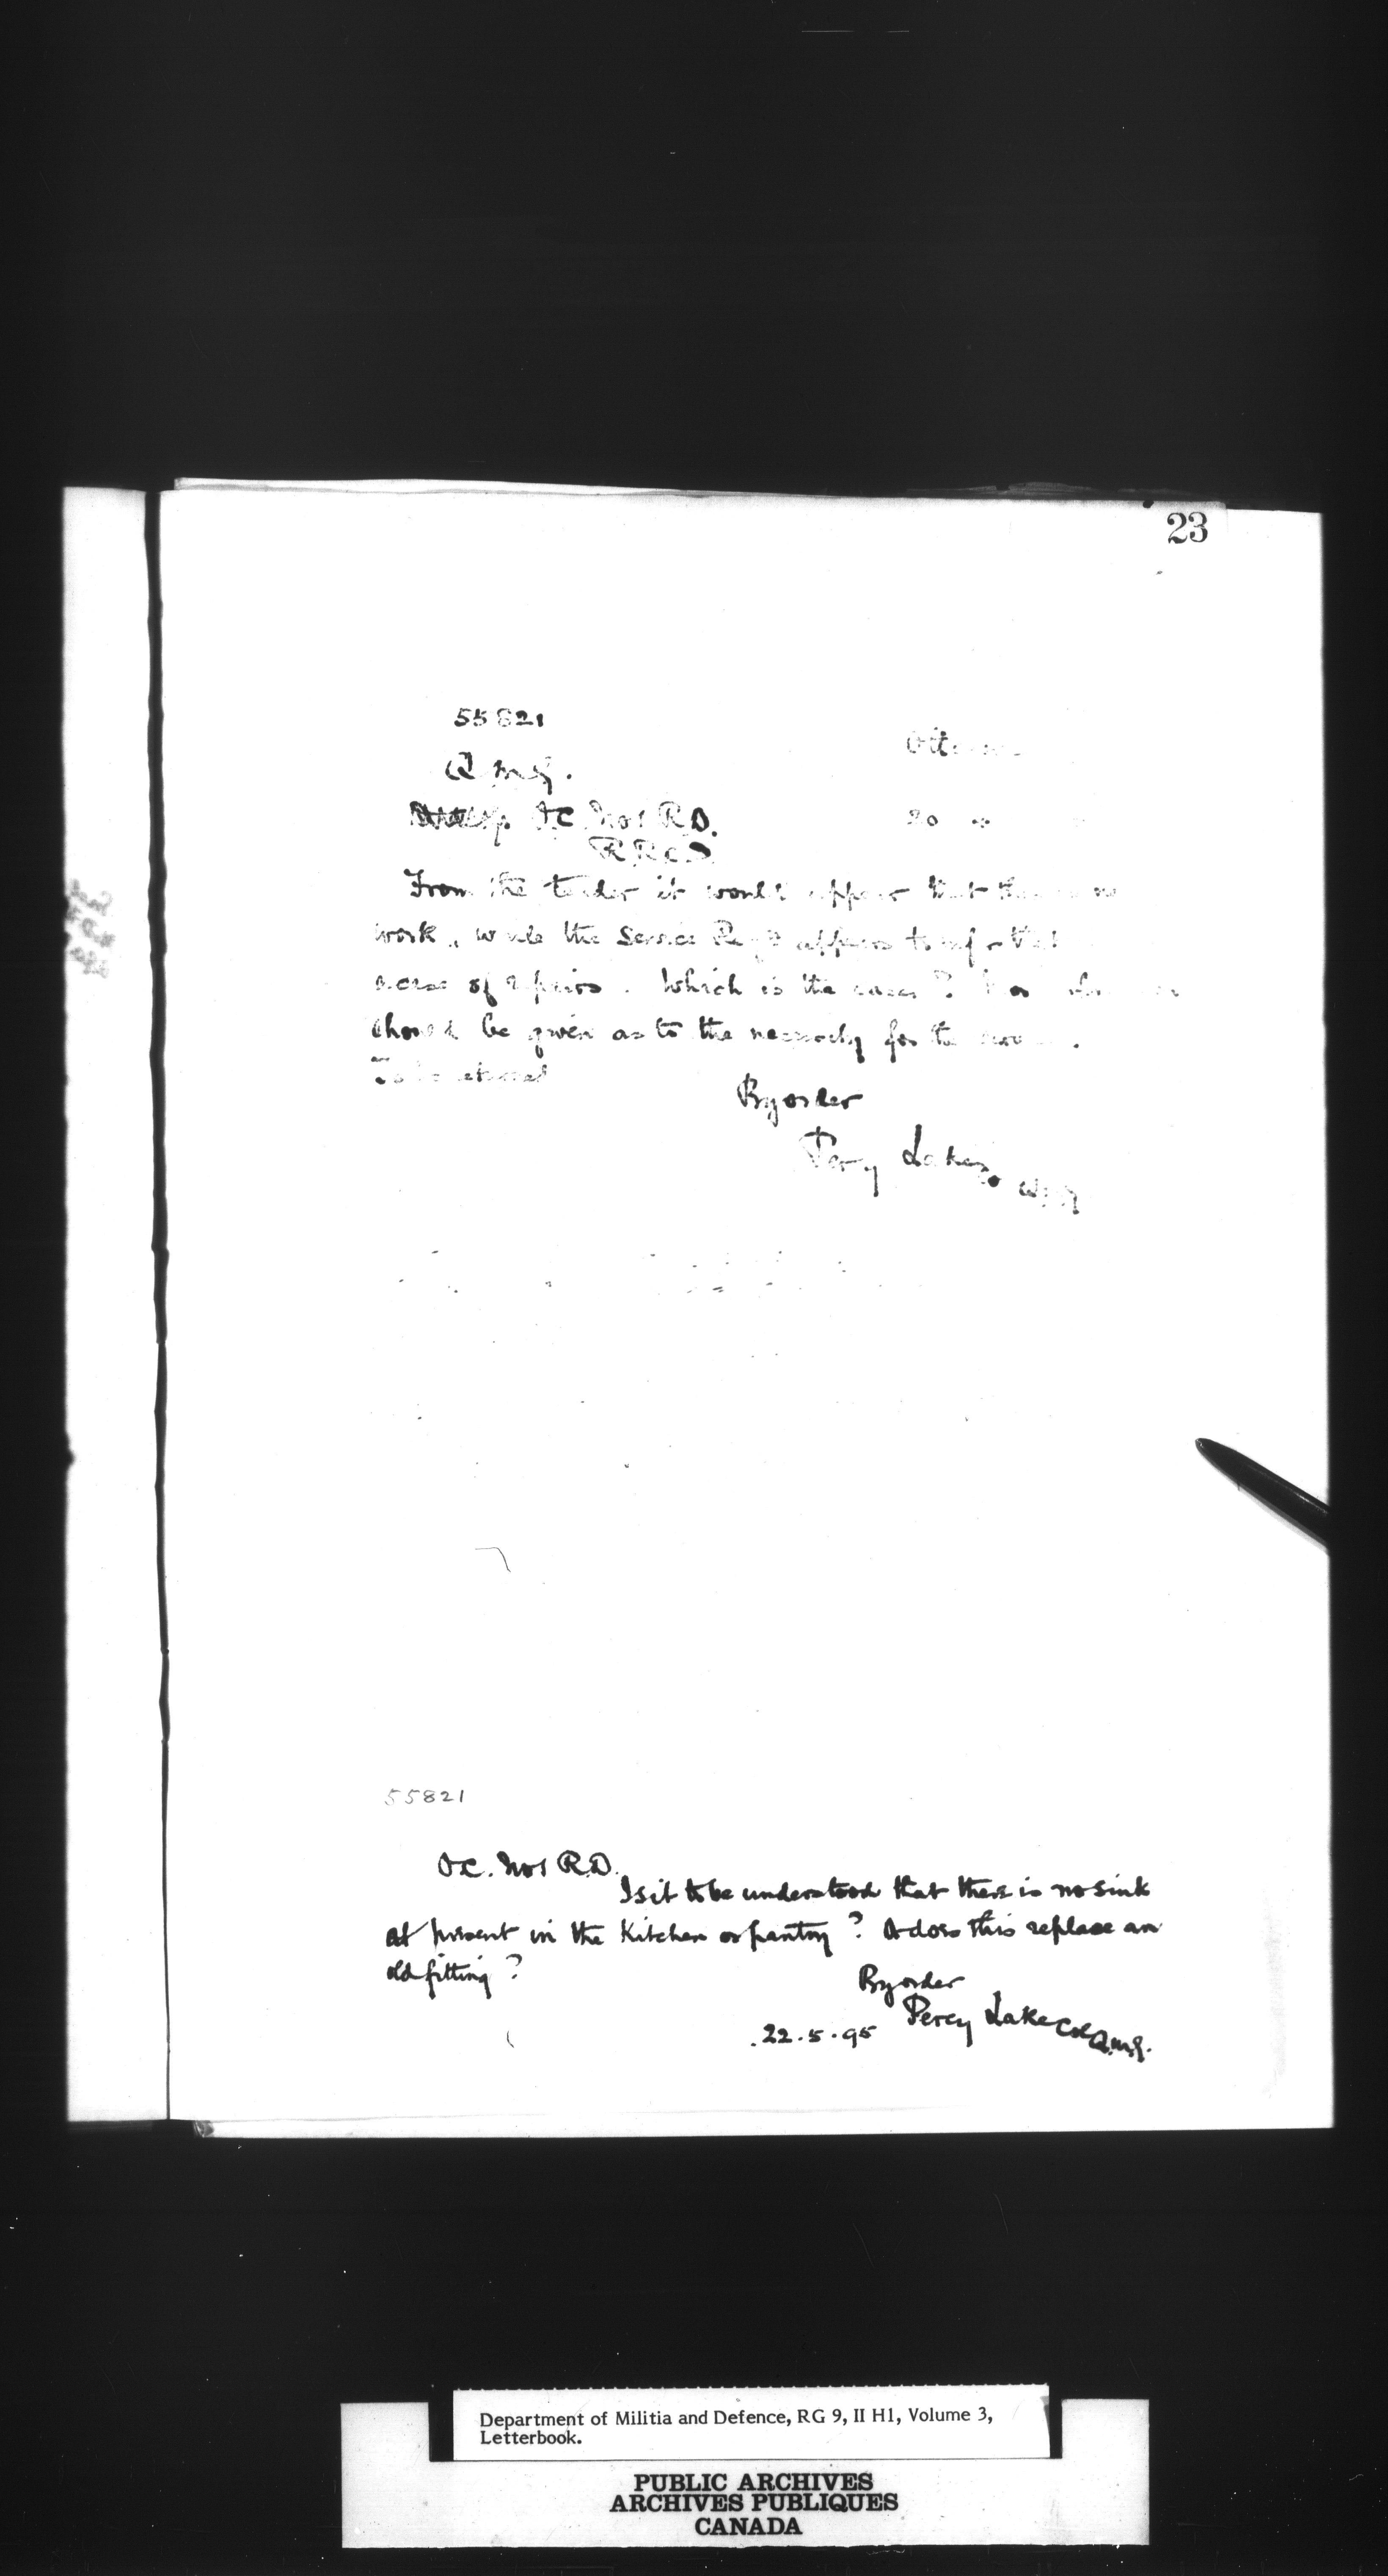 23
55821
Q.M.G.
O.C. No 1 R.D.
20
R.R.C.D.
From the tender it would appear that
work, while the Service Reqt appears to
a case of repairs. Which is the case?
should be given as to the necessity for the
To be returned
By order
Percy Lake
55821
O.C. No 1 R.D.
Is it to be understood that there is no sink
at present in the Kitchen or pantry? Or does this replace an
old fitting?
By order
22.5.95 Percy Lake Col Q.M.G.
Department of Militia and Defence, RG 9, II H1, Volume 3,
Letterbook.
PUBLIC ARCHIVES
ARCHIVES PUBLIQUES
CANADA